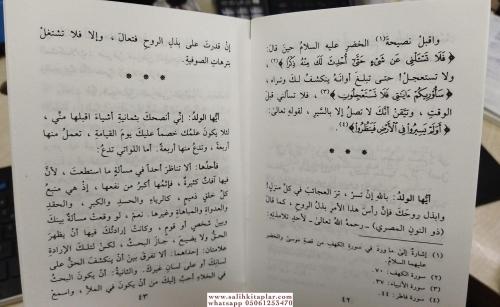 واقبلْ نصيحةَ(١) الخضرِ عليه السلامُ حينَ قالَ:
﴿فَلَا تَسْـَٔلْنِى عَن شَىْءٍ حَتَّىٰٓ أُحْدِثَ لَكَ مِنْهُ ذِكْرًا﴾(٢)
ولا تستعجلْ! حتى تبلغَ أوانَهُ ينكشفُ لكَ وتراه،
﴿سَأُو۟رِيكُمْ ءَايَـٰتِى فَلَا تَسْتَعْجِلُونِ﴾(٣)، فلا تسألني قبلَ
الوقتِ، وتيقَّنْ أنَّكَ لا تصلُ إلا بالسَّيرِ، لقولهِ تعالى:
﴿أَوَلَمْ يَسِيرُوا۟ فِى ٱلْأَرْضِ فَيَنظُرُوا۟﴾(٤).
* * *
أيُّها الولدُ: باللهِ إنْ تسرْ، ترَ العجائبَ في كلِّ منزلٍ!
وابذلْ روحَكَ فإنَّ رأسَ هذا الأمرِ بذلُ الروحِ، كما قالَ
(ذو النون المصري) ـ رحمهُ اللهُ تعالىٰ ـ لأحدِ تلامذتِهِ:
(١) إشارة إلى ما ورد في سورة الكهف من قصة موسى والخضر
عليهما السلام.
(٢) سورة الكهف: ٧٠.
(٣) سورة الأنبياء: ٣٧.
(٤) سورة فاطر: ٤٤.
٤٢
إنْ قدرتَ على بذلِ الروحِ فتعالَ، وإلا فلا تشتغلْ
بترهاتِ الصوفيةِ.
* * *
أيُّها الولدُ: إنِّي أنصحُكَ بثمانيةِ أشياءَ اقبلها منِّي،
لئلا يكونَ علمُكَ خصماً عليكَ يومَ القيامةِ، تعملُ منها
أربعةً، وتدعُ منها أربعةً: أما اللواتي تدعُ:
فأحدُها: ألا تناظرَ أحداً في مسألةٍ ما استطعتَ، لأنَّ
فيها آفاتٍ كثيرةً، فإثمُها أكبرُ من نفعها، إذْ هي منبعُ
كلِّ خلقٍ ذميمٍ، كالرياءِ والحسدِ والكبرِ، والحقدِ
والعداوةِ والمباهاةِ وغيرها. نعمْ، لو وقعتْ مسألةٌ بينكَ
وبينَ شخصٍ أو قومٍ، وكانتْ إرادتُكَ فيها أنْ يظهرَ
الحقُّ ولا يضيعَ، جازَ البحثُ، لكنْ لتلكَ الإرادةِ
علامتانِ: إحداهما: ألا تفرقَ بينَ أنْ ينكشفَ الحقُّ على
لسانِكَ أو على لسانِ غيركَ. والثانيةُ: أنْ يكونَ البحثُ
في الخلاءِ أحبَّ إليكَ منْ أنْ يكونَ في الملأِ، واسمعْ
٤٣
www.salihkitaplar.com
whatsapp 05061253470